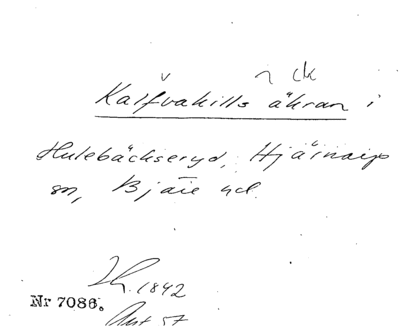 ck
Kalfvakills åkran i
Hulebäckseryd, Hjärnarps
sn, Bjäre hd.
1842
Nr 7086.
Avst 57